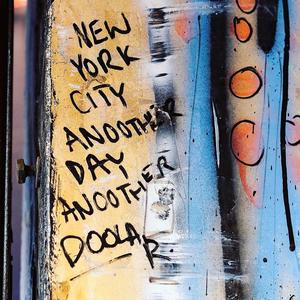 NEW
YORK
CITY
ANOOTHER
DAY
ANOOTHER
DOOLAR.